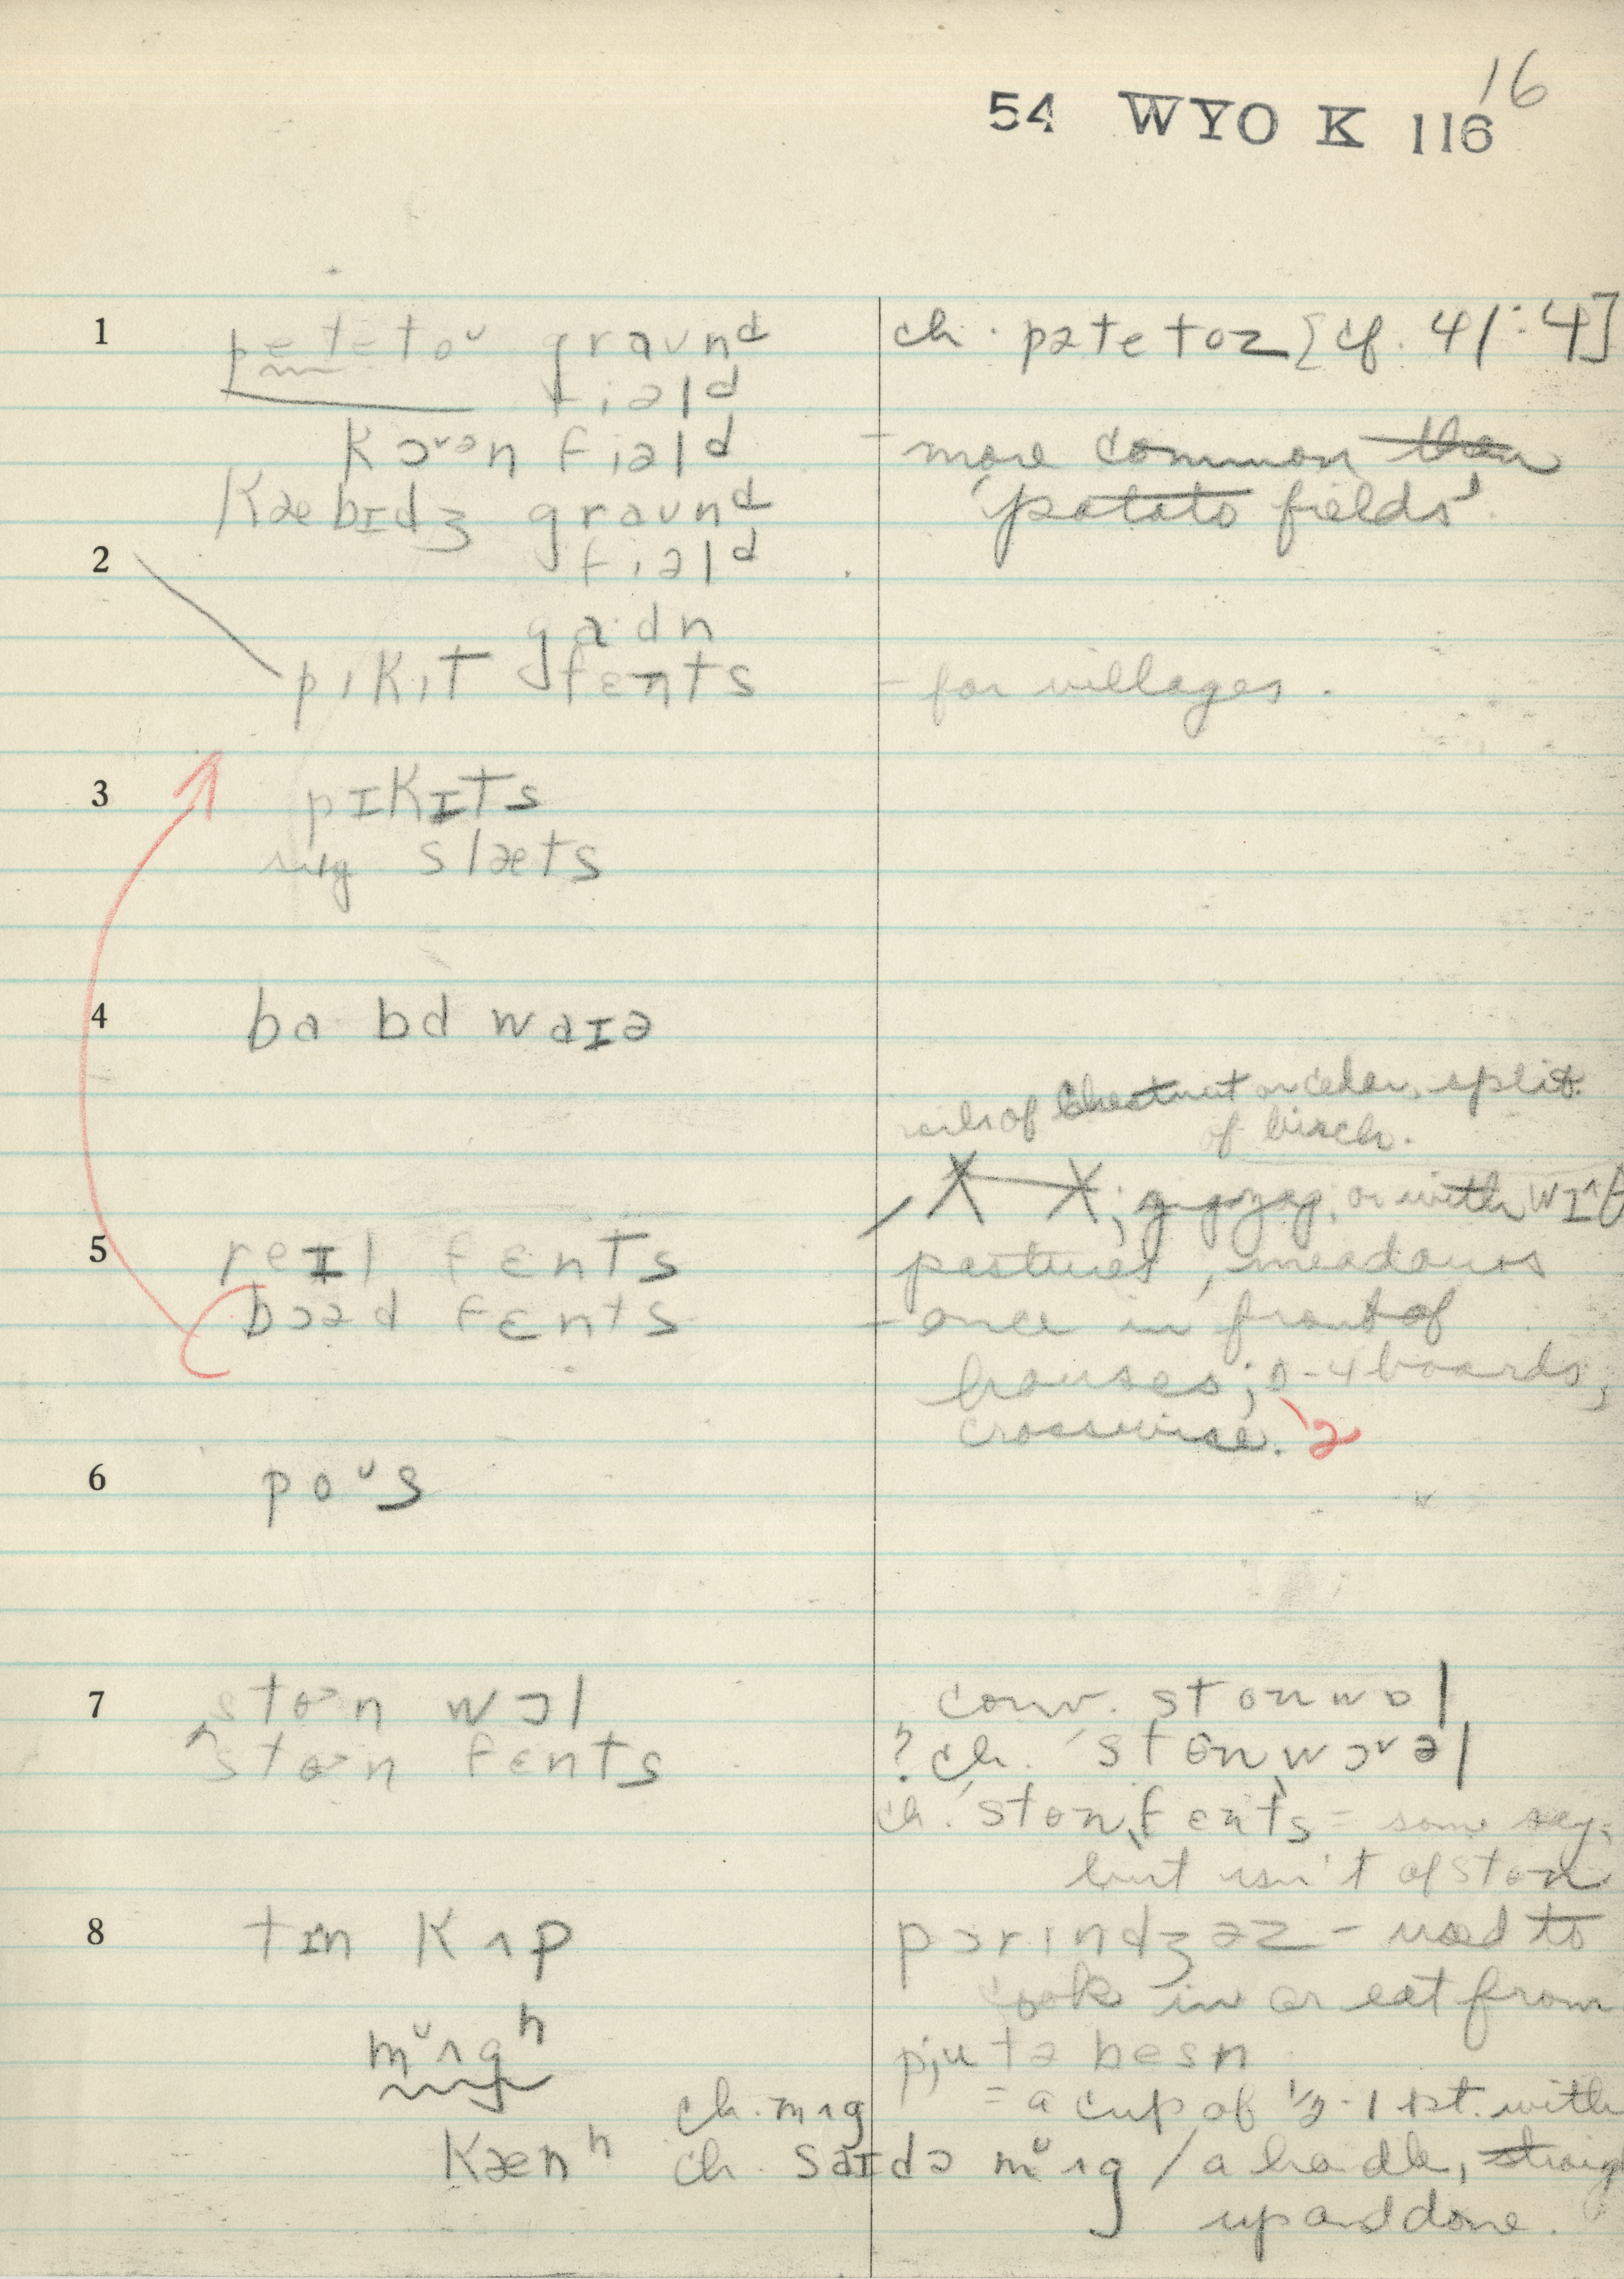 16
54 WYO K 116
1 petetoᴜ graʊnᵈ ch. pətetoz [cf. 41:4]
fiəlᵈ
kɔᵛᵊn fiəlᵈ – more common than
kæbɪdʒ graʊnᵈ 'potato fields'.
2 fiəlᵈ
gaˑdn
pıkıt fɛnts – for villages.
3 pɪkɪts
sug slæts
4 ba bd waɪə
rails of chestnut or cedar, split
of birch.
; zigzag; or with
5 reɪl fɛnts pastures, meadows
bɔəd fɛnts – once in front of
houses; 0-4 boards,
crosswise. 2
6 poᵘs
7 stɵn wɔl conv. stonwɔl
stɵn fɛnts ? ch. ˈstɵnˌwɔᵛəl
ch. ˈstonˌfɛnts = some say,
but isn't of ston
8 tɪn kʌp pɔrındʒəz – used to
cook in or eat from
mᵘʌgʰ pjutə besn
ch. mʌg = a cup of ½-1 pt. with
kænʰ ch. saɪdə mᵘʌg / a handle,
up and done.